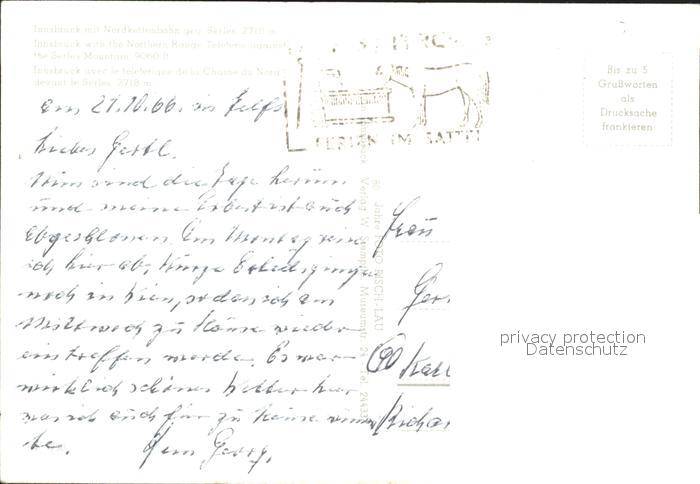 Innsbruck mit Nordkettenbahn geg. Serles. 2718 m
Innsbruck with the Northern Range Teleferic against
the Serles Mountain. 9060 ft
Innsbruck avec le teleferique de la Chasne du Nord
devant le Serles. 2718 m
Bis zu 5
Grußworten
als
Drucksache
frankieren
FERIEN IM SATTEL
am 21.10.66. in Telfs
Liebes Gertl.
sind die Tage herum
und meine Arbeit ist auch
abgeschlossen. Am Montag reise
ich hier ab, kurze Erledigungen
noch in Wien, so dass ich am
Mittwoch zu Hause wieder
eintreffen werde. Es war
wirklich schönes Wetter hier
was ich auch für zu Hause
te. Dein Georg.
60 Jahre FOTO RISCH-LAU
Verlag W. Stempfle, Museumstr. Tel.
Frau
Ger
Karl
Richar
privacy protection
Datenschutz